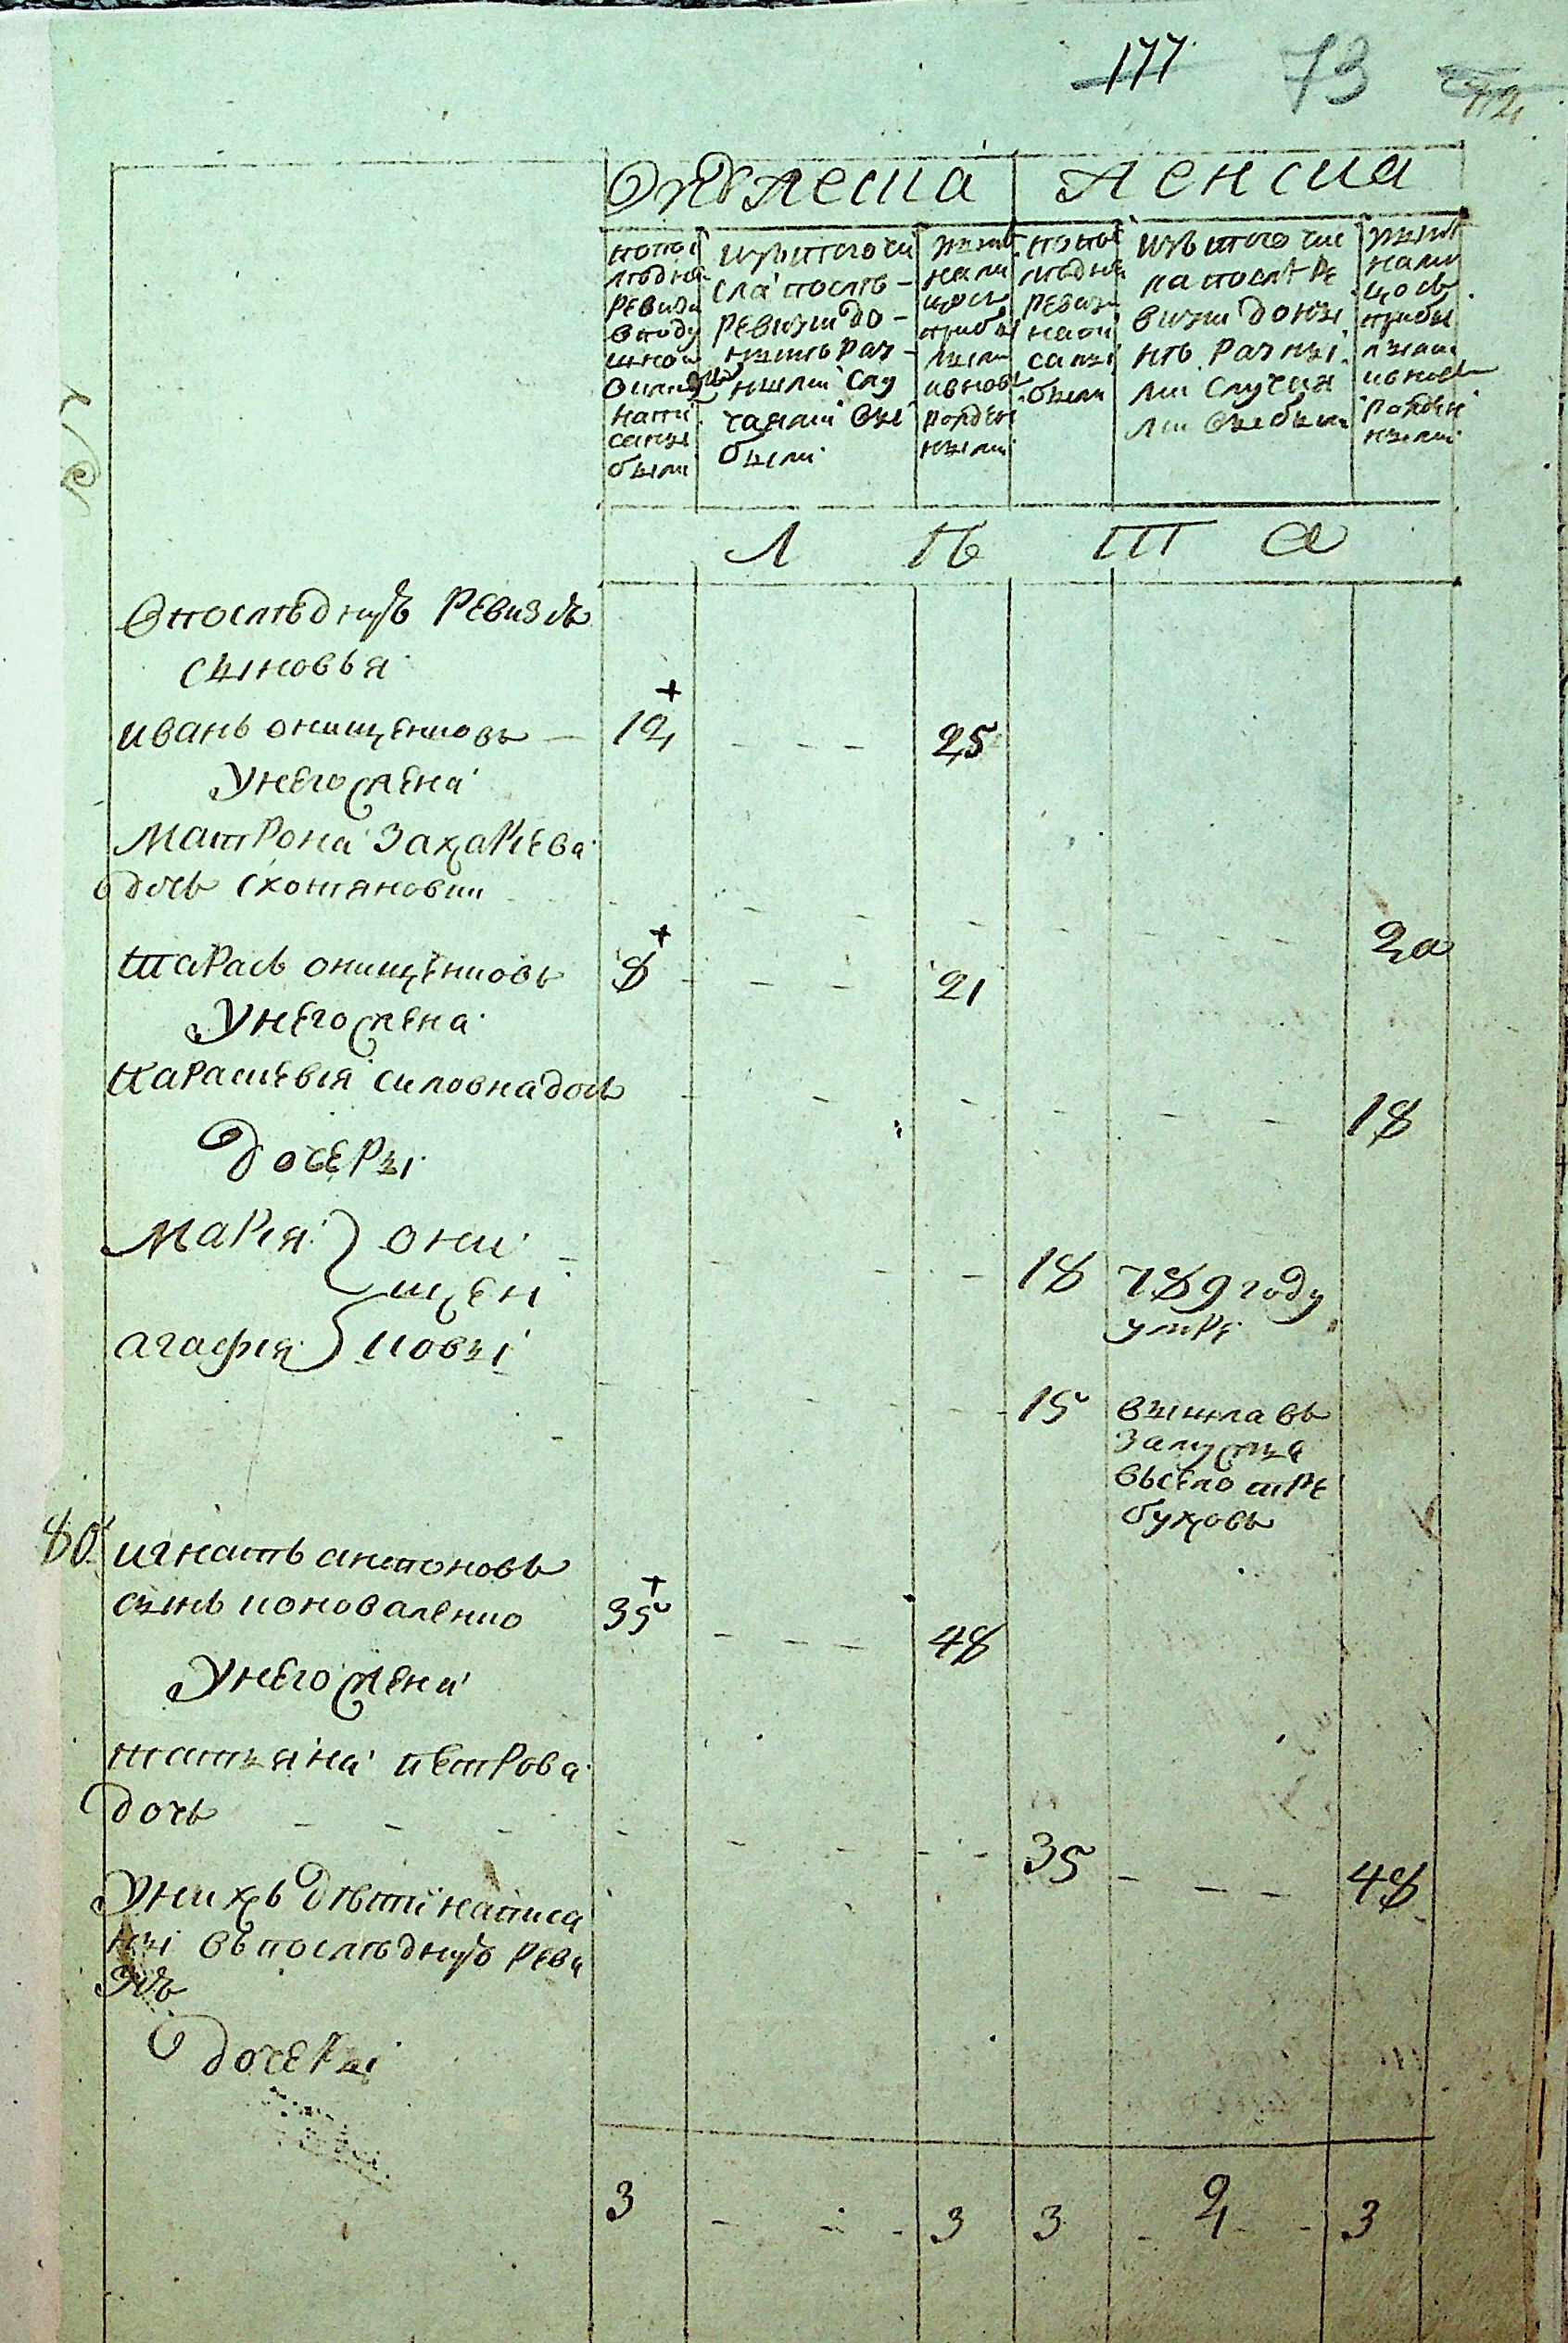 177 73 72
мужеска женска
по пос
лѣдней
ревизи
в поду
шной
окладъ
напи
саны
были
изъ того чи
сла послѣ
ревизии до
ныне раз
ными слу
чаями вы
были
ныне
нали
цо съ
прибы
лыми
и внов
рожден
ными
по пос
лѣдней
ревизи
напи
саны
были
изъ того чис
ла послѣ ре
визии до ны
нѣ разны
ми случая
ми выбыли
ныне
нали
цо съ
прибы
лыми
и вновь
рожден
ными
Л Ѣ Т А
В последную ревизию
сыновья
иванъ онищенковъ 12 25
У него жена
Матрона Захариева
дочь с хотяновки 20
Тарасъ онищенковъ 8 21
У него жена
Параскевия силовна дочь 18
Дочеры
Мария } они
щен 18 789 году
умре
агафия } ковы
15 вышла въ
замужъя
въ село тре
буховъ
80 игнатъ антоновъ
сынъ коноваленко 35 48
У него жена
татьяна петрова
дочь 35 48
У нихъ дѣти написа
ны въ последную реви
зию
Дочеры
3 3 3 2 3